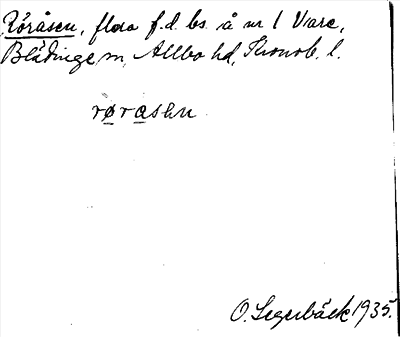 Röråsen, flera f.d. bs. å nr 1 Viare,
Blädinge sn, Allbo hd, Kronob. l.
rørasen
O. Segerbäck 1935.